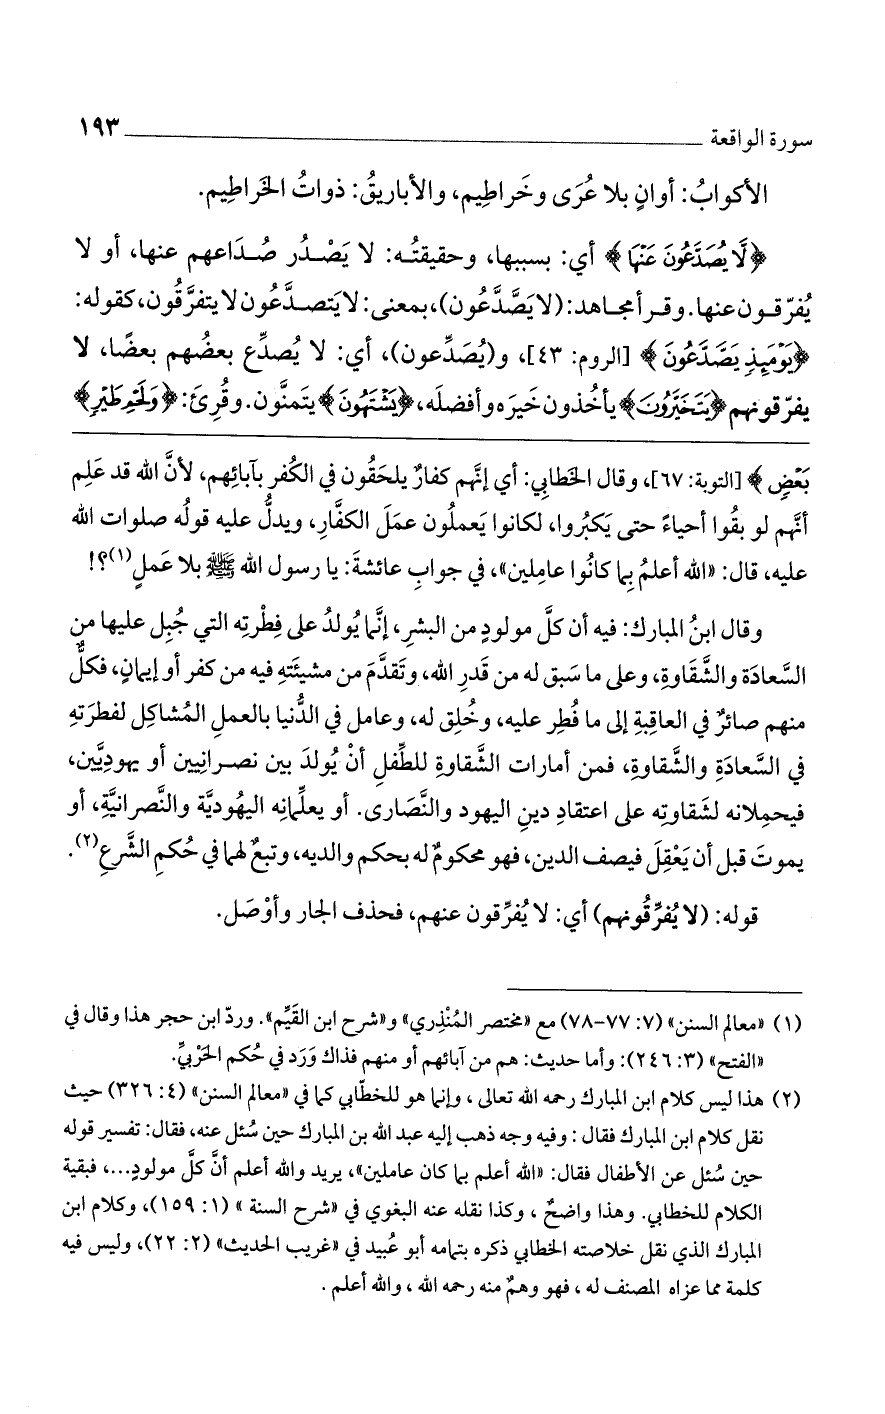 سورة الواقعة ١٩٣
الأكوابُ: أوانٍ بلا عُرَى وخَراطِيم، والأباريقُ: ذواتُ الخَراطِيم.
﴿لَّا يُصَدَّعُونَ عَنْهَا﴾ أي: بسببها، وحقيقتُـه: لا يَصْـدُر صُـدَاعهم عنها، أو لا
يُفرّقـون عنها. وقـرأ مجـاهد: (لا يَصَّدَّعُون)، بمعنى: لا يَتصـدَّعُون لا يتفرَّقُون، كقوله:
﴿يَوْمَئِذٍ يَصَّدَّعُونَ﴾ [الروم: ٤٣]، و(يُصَدِّعون)، أي: لا يُصدِّع بعضُهم بعضًا، لا
يفرّقونهم ﴿يَتَخَيَّرُونَ﴾ يأخُذون خَيرَه وأفضلَه، ﴿يَشْتَهُونَ﴾ يتمنَّون. وقُرِئَ: ﴿وَلَحْمِ طَيْرٍ﴾
بَعْضٍ﴾ [التوبة: ٦٧]، وقال الخَطابِي: أي إنَّهم كفارٌ يلحَقُون في الكُفر بآبائِهم، لأنَّ الله قد عَلِم
أنَّهم لو بقُوا أحياءً حتى يَكبُروا، لكانوا يَعملُون عمَلَ الكفَّارِ، ويدلُّ عليه قولُه صلوات الله
عليه، قال: «الله أعلمُ بِما كانُوا عامِلين»، في جوابِ عائشةَ: يا رسول الله ﷺ بلا عَملٍ(١)؟!
وقال ابنُ المبارك: فيه أن كلَّ مولودٍ من البشرِ، إنَّما يُولدُ على فِطْرتِه التي جُبِل عليها من
السَّعادَة والشَّقاوةِ، وعلى ما سَبق له من قَدرِ الله، وتَقدَّمَ من مشيئَتهِ فيه من كفر أو إيمانٍ، فكلٌّ
منهم صائرٌ في العاقِبةِ إلى ما فُطِر عليه، وخُلِق له، وعامل في الدُّنيا بالعملِ المُشاكِل لفطرَتهِ
في السَّعادَةِ والشَّقاوةِ، فمن أمارات الشَّقاوةِ للطِّفلِ أنْ يُولدَ بين نصـرانِيين أو يهودِيَّين،
فيحمِلانه لشَقاوتِه على اعتقادِ دينِ اليهود والنَّصَارى. أو يعلِّمانِه اليهُوديَّة والنَّصرانيَّةِ، أو
يموتَ قبل أن يَعْقِلَ فيصف الدين، فهو محكومٌ له بحكم والديه، وتبعٌ لهما في حُكمِ الشَّرعِ(٢).
قوله: (لا يُفرِّقُونهم) أي: لا يُفرِّقون عنهم، فحذف الجار وأوْصَل.
(١) «معالم السنن» (٧: ٧٧-٧٨) مع «مختصر المُنْذِري» و«شرح ابن القَيِّم». وردّ ابن حجر هذا وقال في
«الفتح» (٣: ٢٤٦): وأما حديث: هم من آبائهم أو منهم فذاك وَرَد في حُكم الحَرْبيِّ.
(٢) هذا ليس كلام ابن المبارك رحمه الله تعالى ، وإنما هو للخطّابي كما في «معالم السنن» (٤: ٣٢٦) حيث
نقل كلام ابن المبارك فقال : وفيه وجه ذهب إليه عبد الله بن المبارك حين سُئل عنه، فقال: تفسير قوله
حين سُئل عن الأطفال فقال: «الله أعلم بما كان عاملين»، يريد والله أعلم أنَّ كلَّ مولودٍ...، فبقية
الكلام للخطابي. وهذا واضحٌ ، وكذا نقله عنه البغوي في «شرح السنة » (١: ١٥٩)، وكلام ابن
المبارك الذي نقل خلاصته الخطابي ذكره بتمامه أبو عُبيد في «غريب الحديث» (٢: ٢٢)، وليس فيه
كلمة مما عزاه المصنف له ، فهو وهمٌ منه رحمه الله ، والله أعلم .